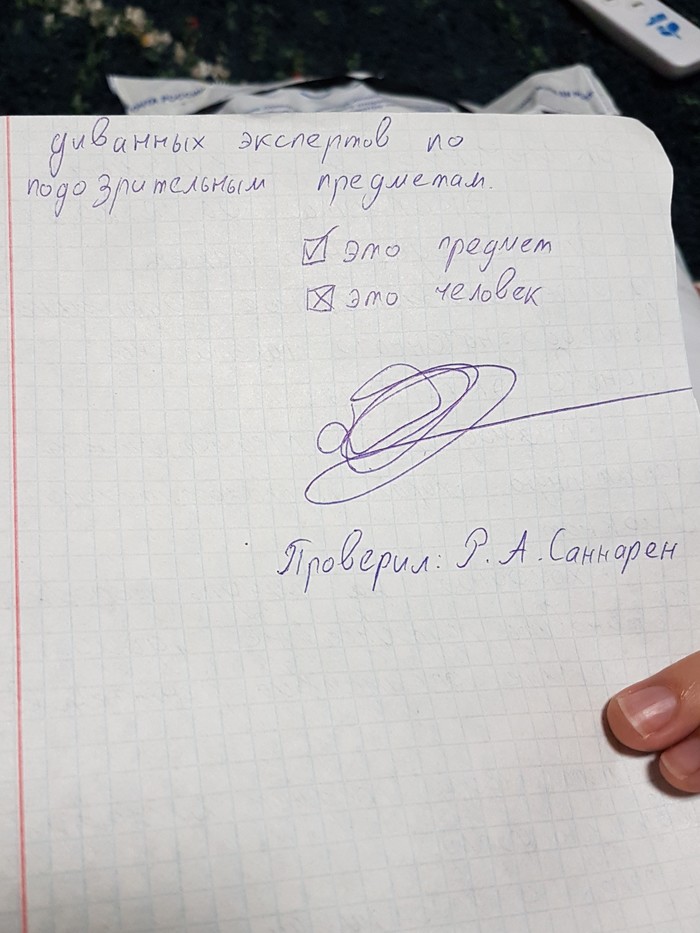 диванных экспертов по
подозрительным предметам.
это предмет
это человек
Проверил: Р. А. Саннарен